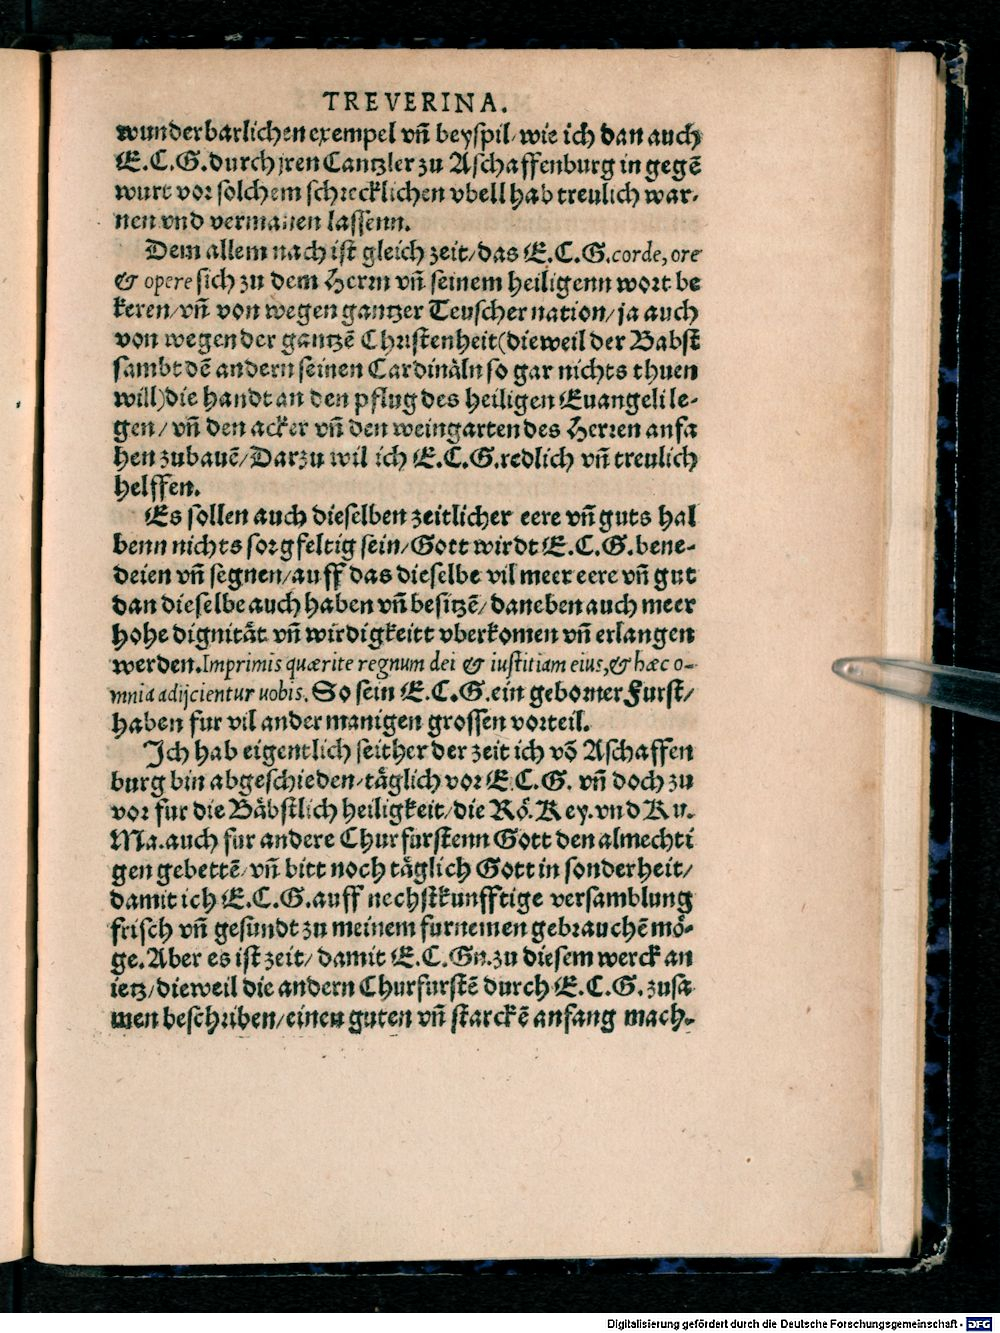 TREVERINA.
wunderbarlichen exempel vñ beyspil/ wie ich dan auch
E.C.G. durch jren Cantzler zu Aschaffenburg in gegē
wurt vor solchem schrecklichen vbell hab treulich war-
nen vnd vermanen lassenn.
Dem allem nach ist gleich zeit/ das E.C.G. corde, ore
& opere sich zu dem Herrn vñ seinem heiligenn wort be
keren/ vñ von wegen gantzer Teuscher nation/ ja auch
von wegen der gantzē Christenheit (dieweil der Babst
sambt dē andern seinen Cardinäln so gar nichts thuen
will) die handt an den pflug des heiligen Euangeli le-
gen/ vñ den acker vñ den weingarten des Herren anfa
hen zubauē/ Darzu wil ich E.C.G. redlich vñ treulich
helffen.
Es sollen auch dieselben zeitlicher eere vñ guts hal
benn nichts sorgfeltig sein/ Gott wirdt E.C.G. bene-
deien vñ segnen/ auff das dieselbe vil meer eere vñ gut
dan dieselbe auch haben vñ besitzē/ daneben auch meer
hohe dignität vñ wirdigkeitt vberkomen vñ erlangen
werden. Imprimis quærite regnum dei & iustitiam eius, & hæc o-
mnia adijcientur uobis. So sein E.C.G. ein geborner Furst/
haben fur vil ander manigen grossen vorteil.
Ich hab eigentlich seither der zeit ich vō Aschaffen
burg bin abgeschieden/ täglich vor E.C.G. vñ doch zu
vor fur die Bäbstlich heiligkeit/ die Rö. Key. vnd Ku.
Ma. auch fur andere Churfurstenn Gott den almechti
gen gebettē/ vñ bitt noch täglich Gott in sonderheit/
damit ich E.C.G. auff nechstkunfftige versamblung
frisch vñ gesundt zu meinem furnemen gebrauchē mö-
ge. Aber es ist zeit/ damit E.C.Gn. zu diesem werck an
ietz/ dieweil die andern Churfurstē durch E.C.G. zusa
men beschriben/ einen guten vñ starckē anfang mach-
Digitalisierung gefördert durch die Deutsche Forschungsgemeinschaft - DFG